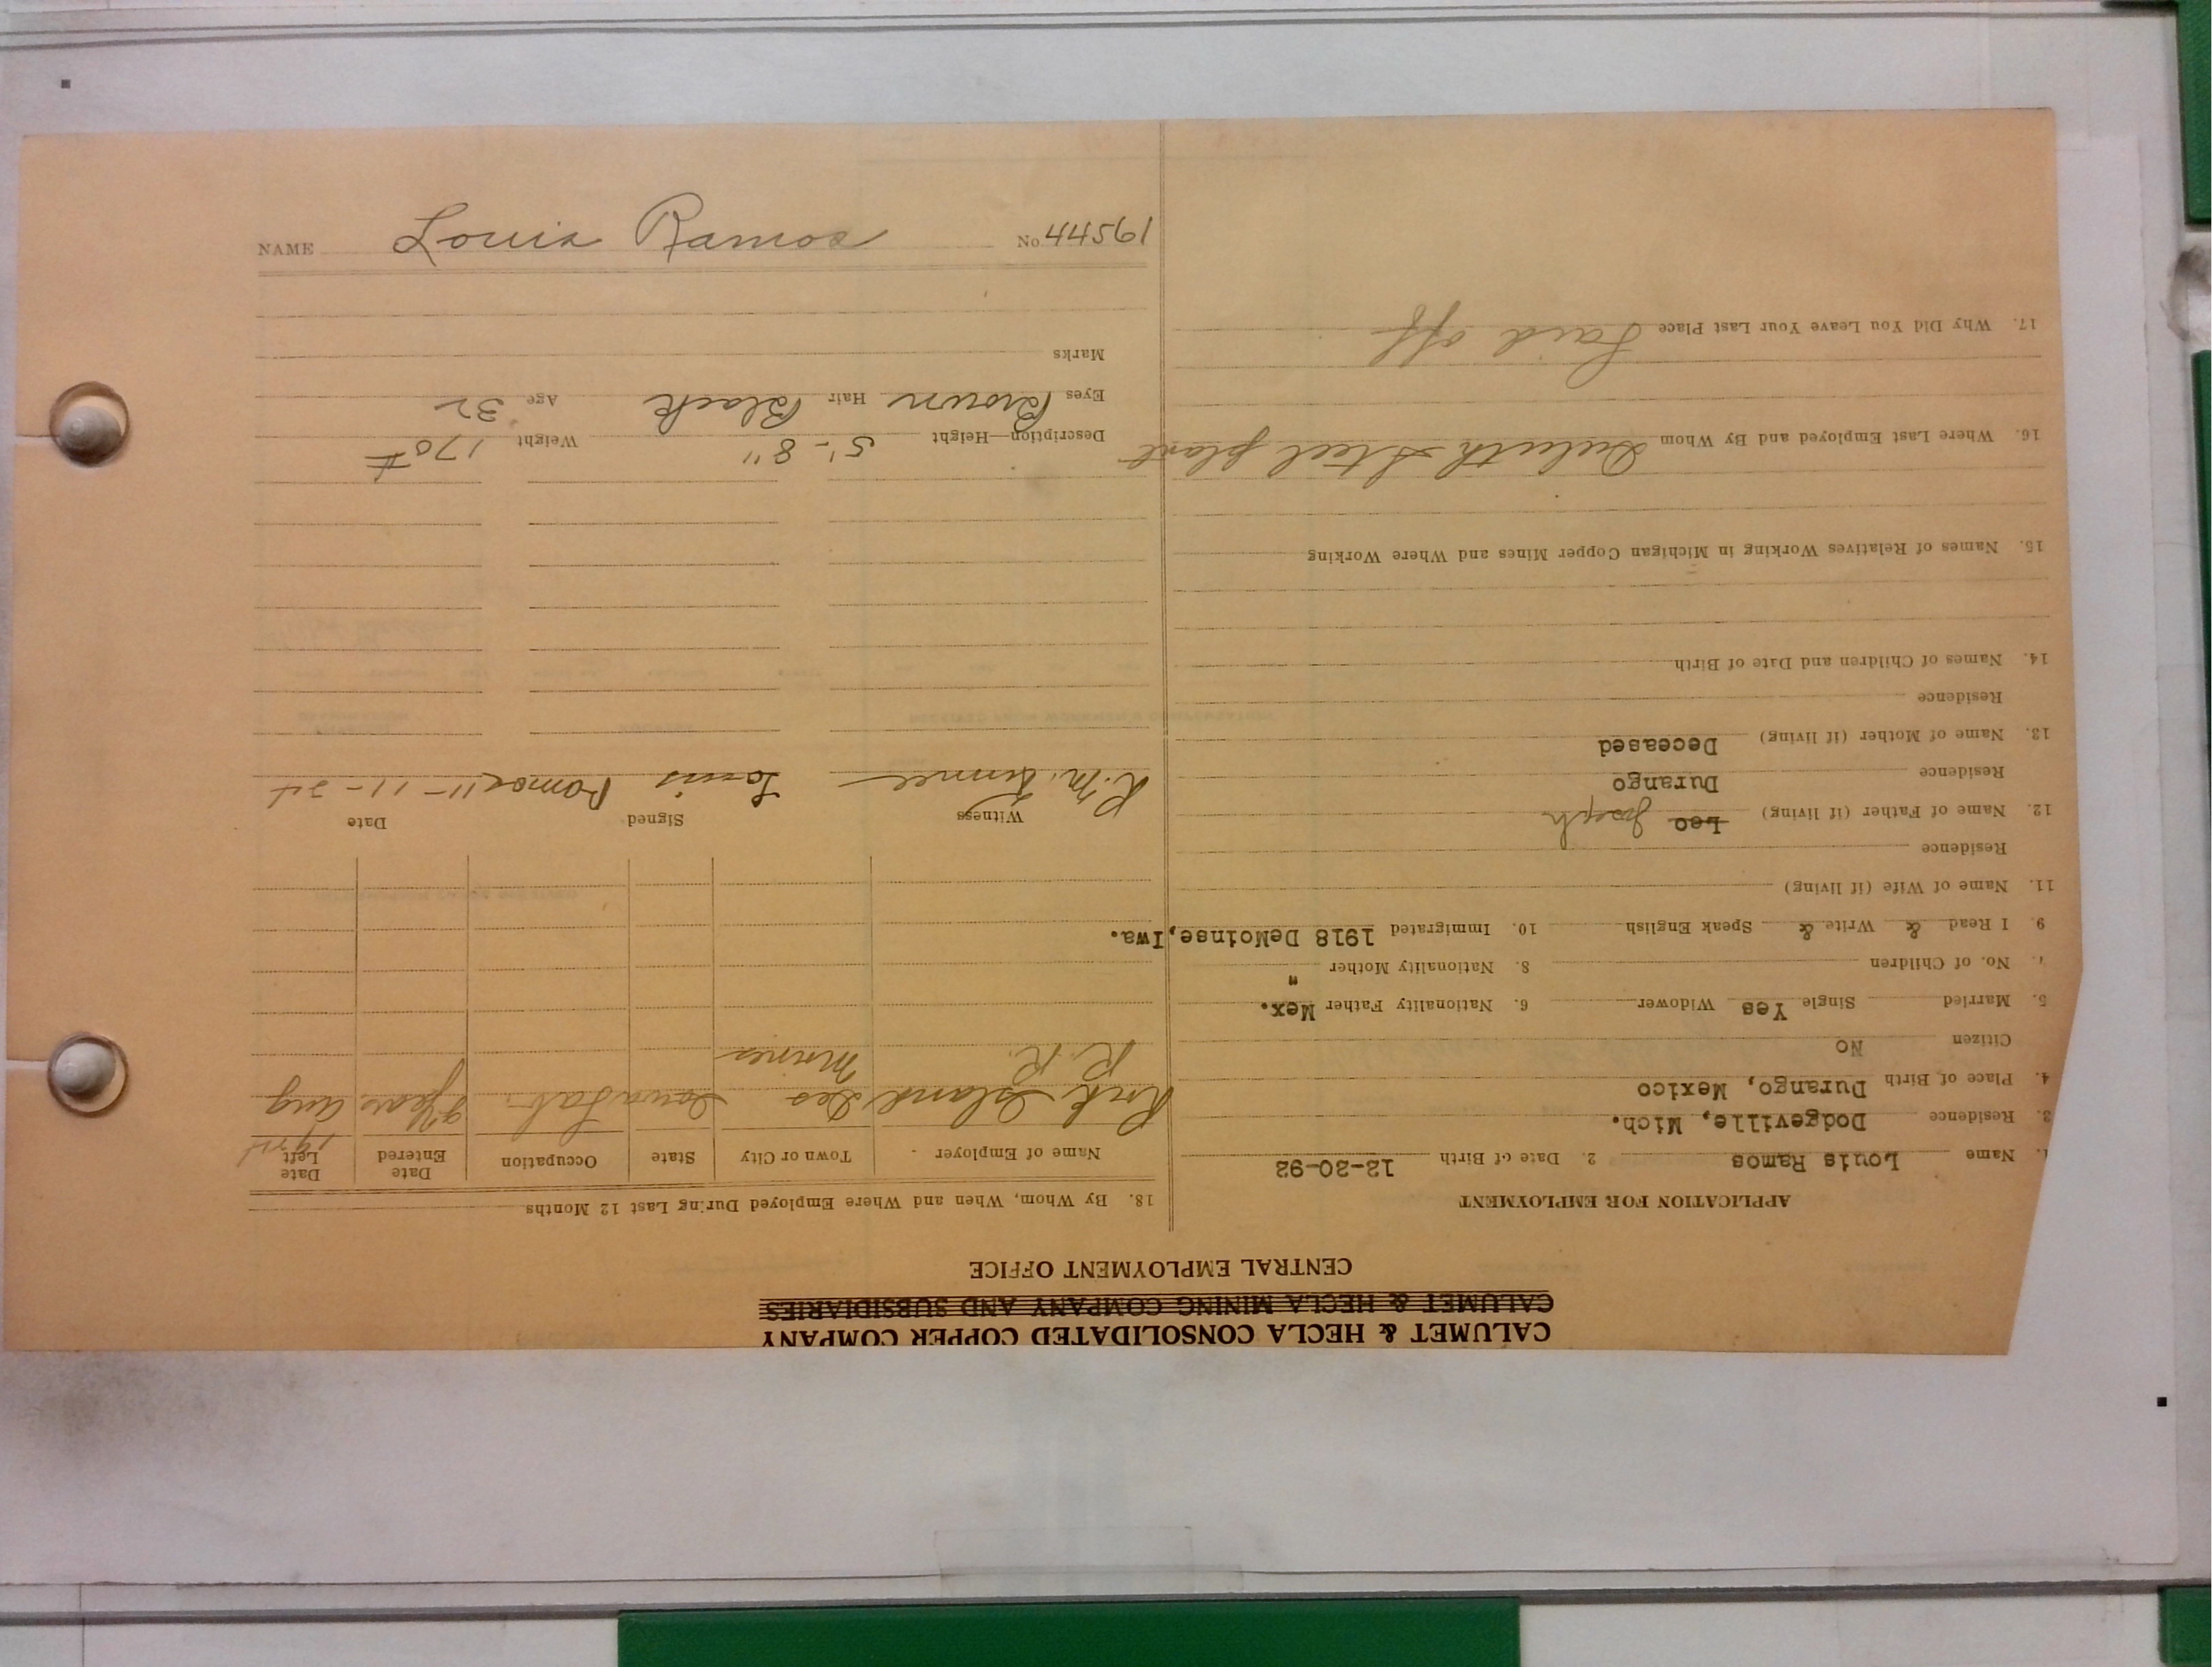 NAME Louis Ramos No 44561
CALUMET & HECLA CONSOLIDATED COPPER COMPANY
CALUMET & HECLA MINING COMPANY AND SUBSIDIARIES
CENTRAL EMPLOYMENT OFFICE
APPLICATION FOR EMPLOYMENT
1. Name Louis Ramos 2. Date of Birth 12-20-92
3. Residence Dodgeville, Mich.
4. Place of Birth Durango, Mexico
Citizen No
5. Married Single Yes Widower 6. Nationality Father Mex.
7. No. of Children 8. Nationality Mother "
9. I Read & Write & Speak English 10. Immigrated 1918 DeMoinse, Iwa.
11. Name of Wife (if living)
Residence
12. Name of Father (if living) Leo Joseph
Residence Durango
13. Name of Mother (if living) Deceased
Residence
14. Names of Children and Date of Birth
15. Names of Relatives Working in Michigan Copper Mines and Where Working
16. Where Last Employed and By Whom Duluth Steel plant
17. Why Did You Leave Your Last Place Laid off
18. By Whom, When and Where Employed During Last 12 Months
Name of Employer Town or City State Occupation Date Entered Date Left
Rock Island Des Iowa Lab. Years Aug
R. R. Moines
Witness Signed Date
R. M. Louis Ramos 11-11-24
Description—Height 5'-8" Weight 170#
Eyes Brown Hair Black Age 32
Marks